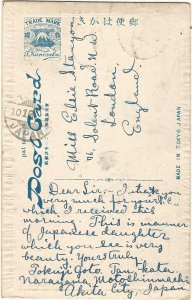 郵便はかき
TRADE MARK
Post Card
MADE IN TOKYO JAPAN
Miss Elsie Stanyon
76, Solent Road N.W.
London,
England
Dear Sir,- I thank you
very much for your P.C.
which I received this
morning. This is manner
of Japanese daughter
which you see is very
beauty. Yours truly,
Tokujo Goto, Tan-kata
Narayama, Motoshinmachi
Akita City, Japan